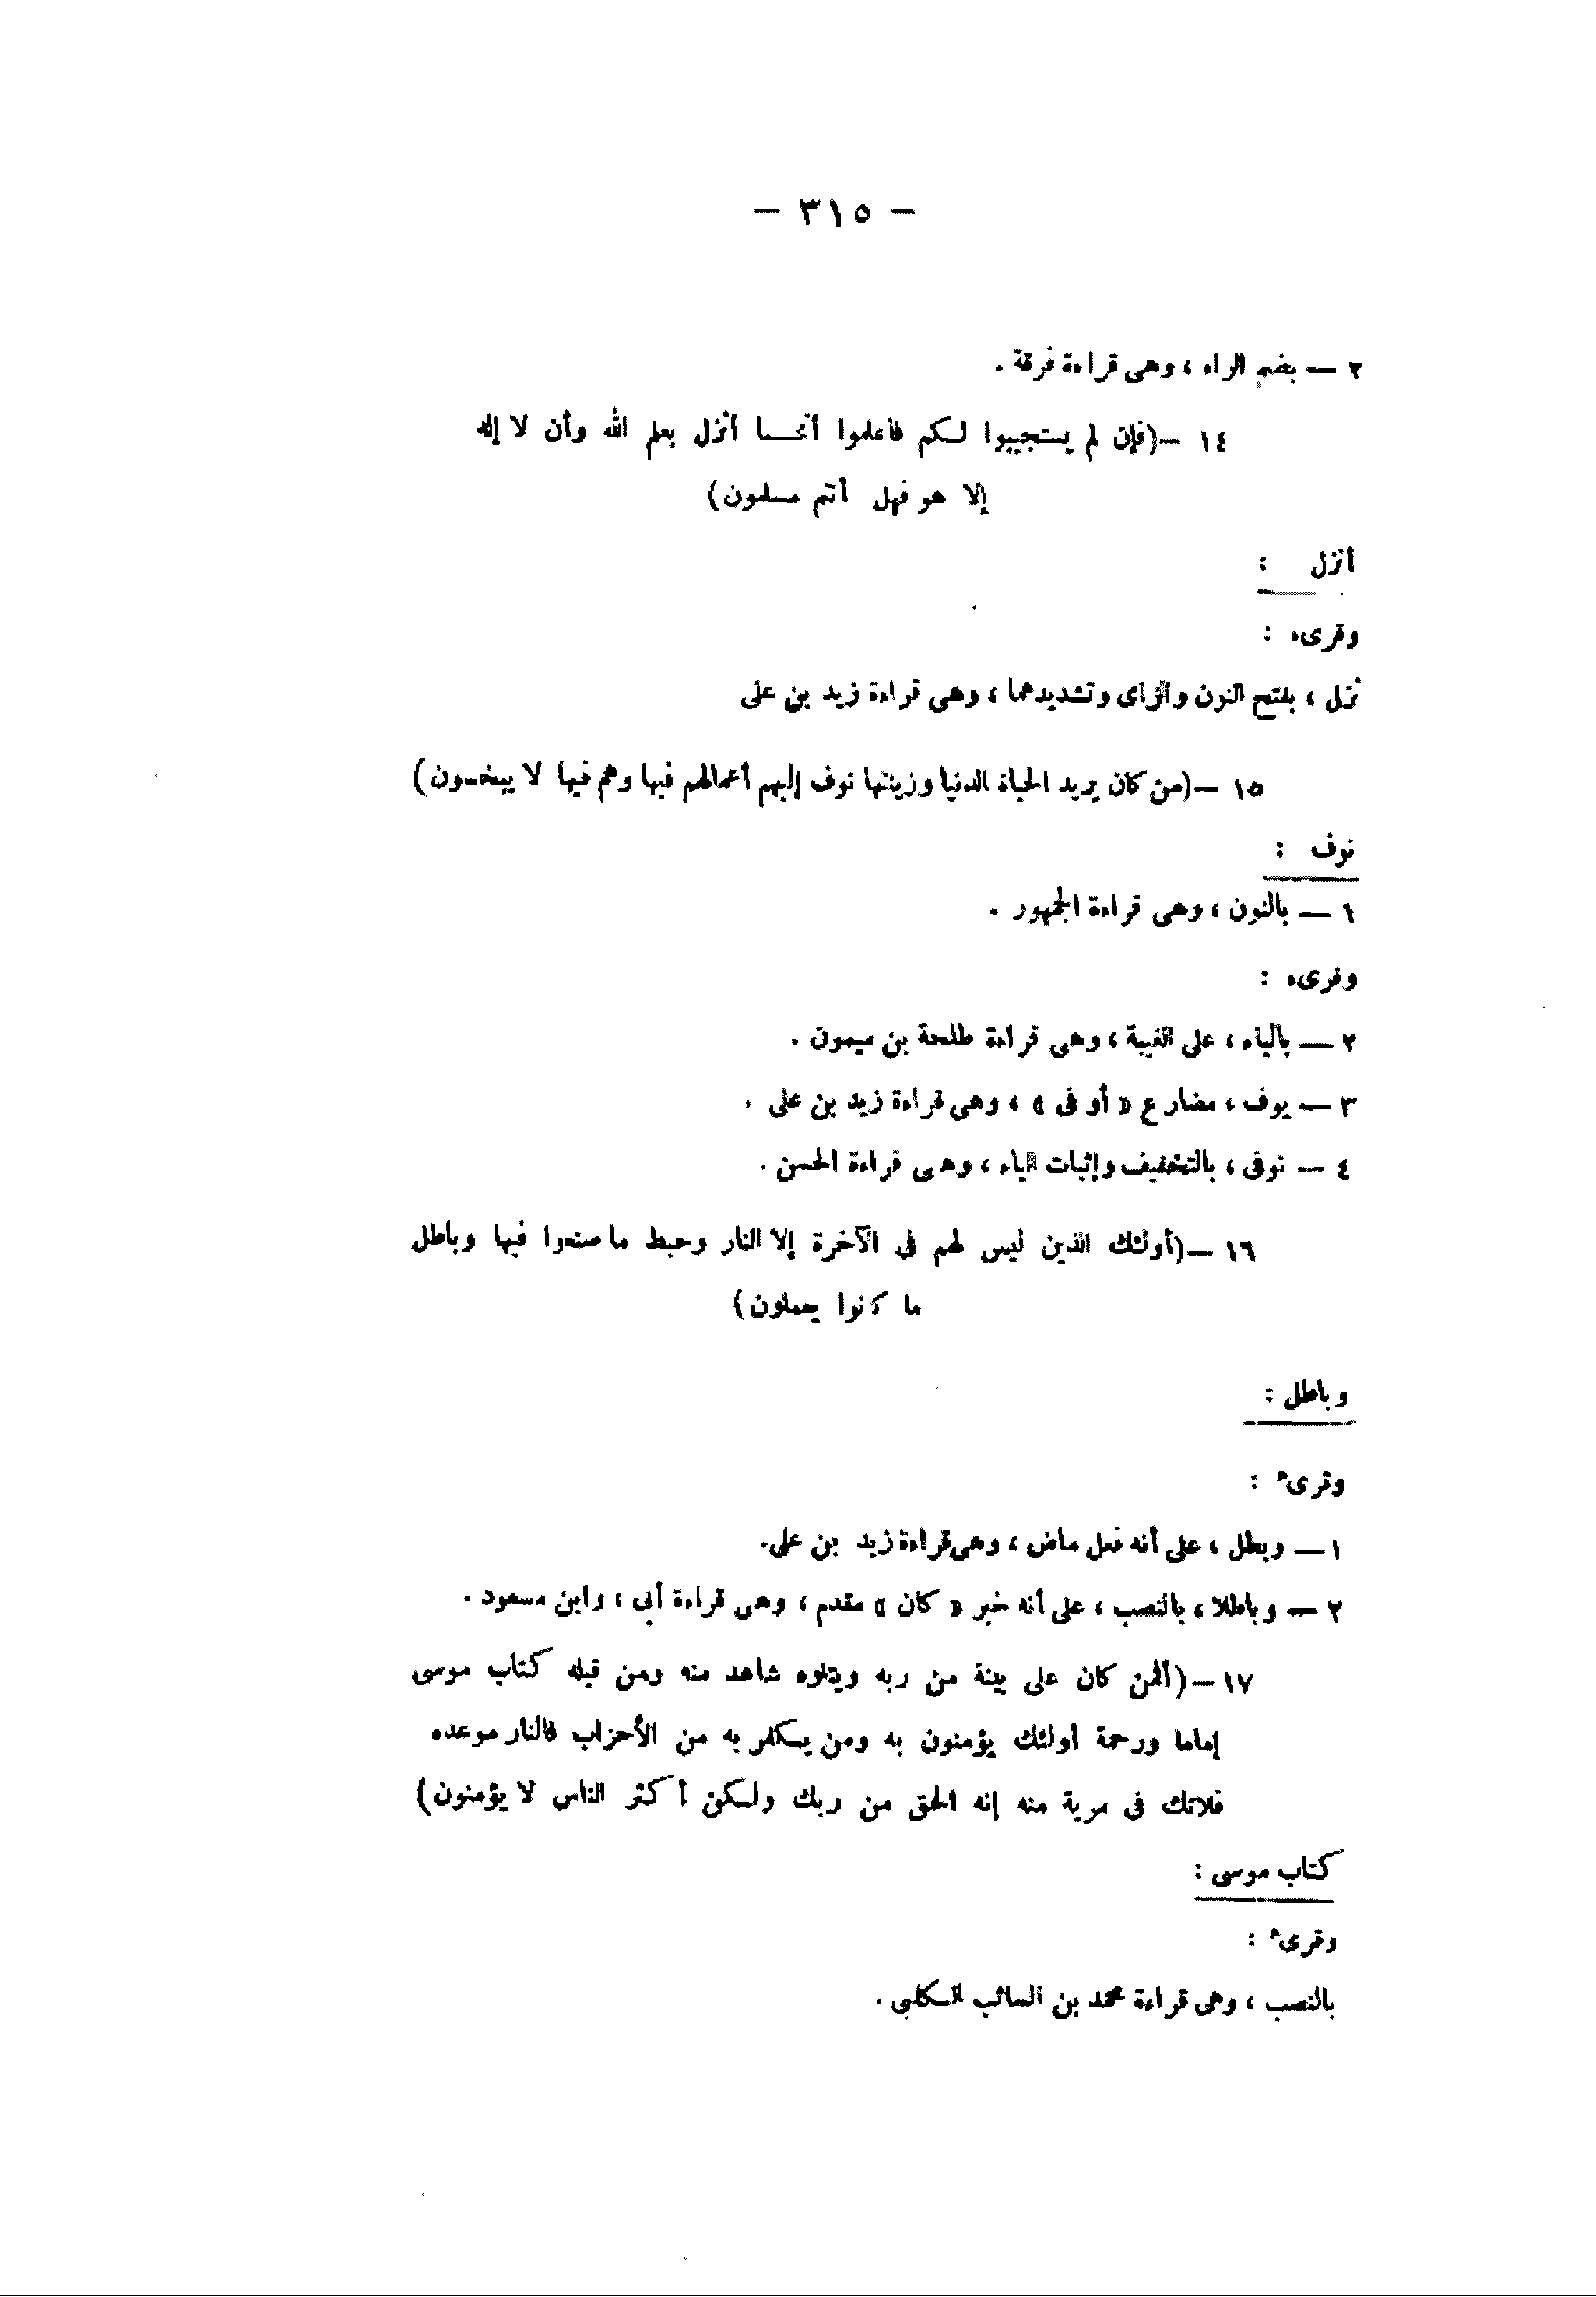 — ٣١٥ —
٢ — بضم الراء ، وهى قراءة فرقة .
١٤ — (فإن لم يستجيبوا لكم فاعلموا أنما أنزل بعلم الله وأن لا إله
إلا هو فهل أنتم مسلمون)
أنزل :
وقرىء :
نزل ، بفتح النون والزاى وتشديدهما ، وهى قراءة زيد بن على
١٥ — (من كان يريد الحياة الدنيا وزينتها نوف إليهم أعمالهم فيها وهم فيها لا يبخسون)
نوف :
١ — بالنون ، وهى قراءة الجمهور .
وقرىء :
٢ — بالياء ، على الغيبة ، وهى قراءة طلحة بن ميمون .
٣ — يوف ، مضارع « أوفى » ، وهى قراءة زيد بن على .
٤ — نوفى ، بالتخفيف وإثبات الياء ، وهى قراءة الحسن .
١٦ — (أولئك الذين ليس لهم فى الآخرة إلا النار وحبط ما صنعوا فيها وباطل
ما كانوا يعملون)
وباطل :
وقرىء :
١ — وبطل ، على أنه فعل ماض ، وهى قراءة زيد بن على.
٢ — وباطلا ، بالنصب ، على أنه خبر « كان » مقدم ، وهى قراءة أبى ، وابن مسعود .
١٧ — (أفمن كان على بينة من ربه ويتلوه شاهد منه ومن قبله كتاب موسى
إماما ورحمة أولئك يؤمنون به ومن يكفر به من الأحزاب فالنار موعده
فلا تك فى مرية منه إنه الحق من ربك ولكن أكثر الناس لا يؤمنون)
كتاب موسى :
وقرىء :
بالنصب ، وهى قراءة محمد بن السائب الكلبى .